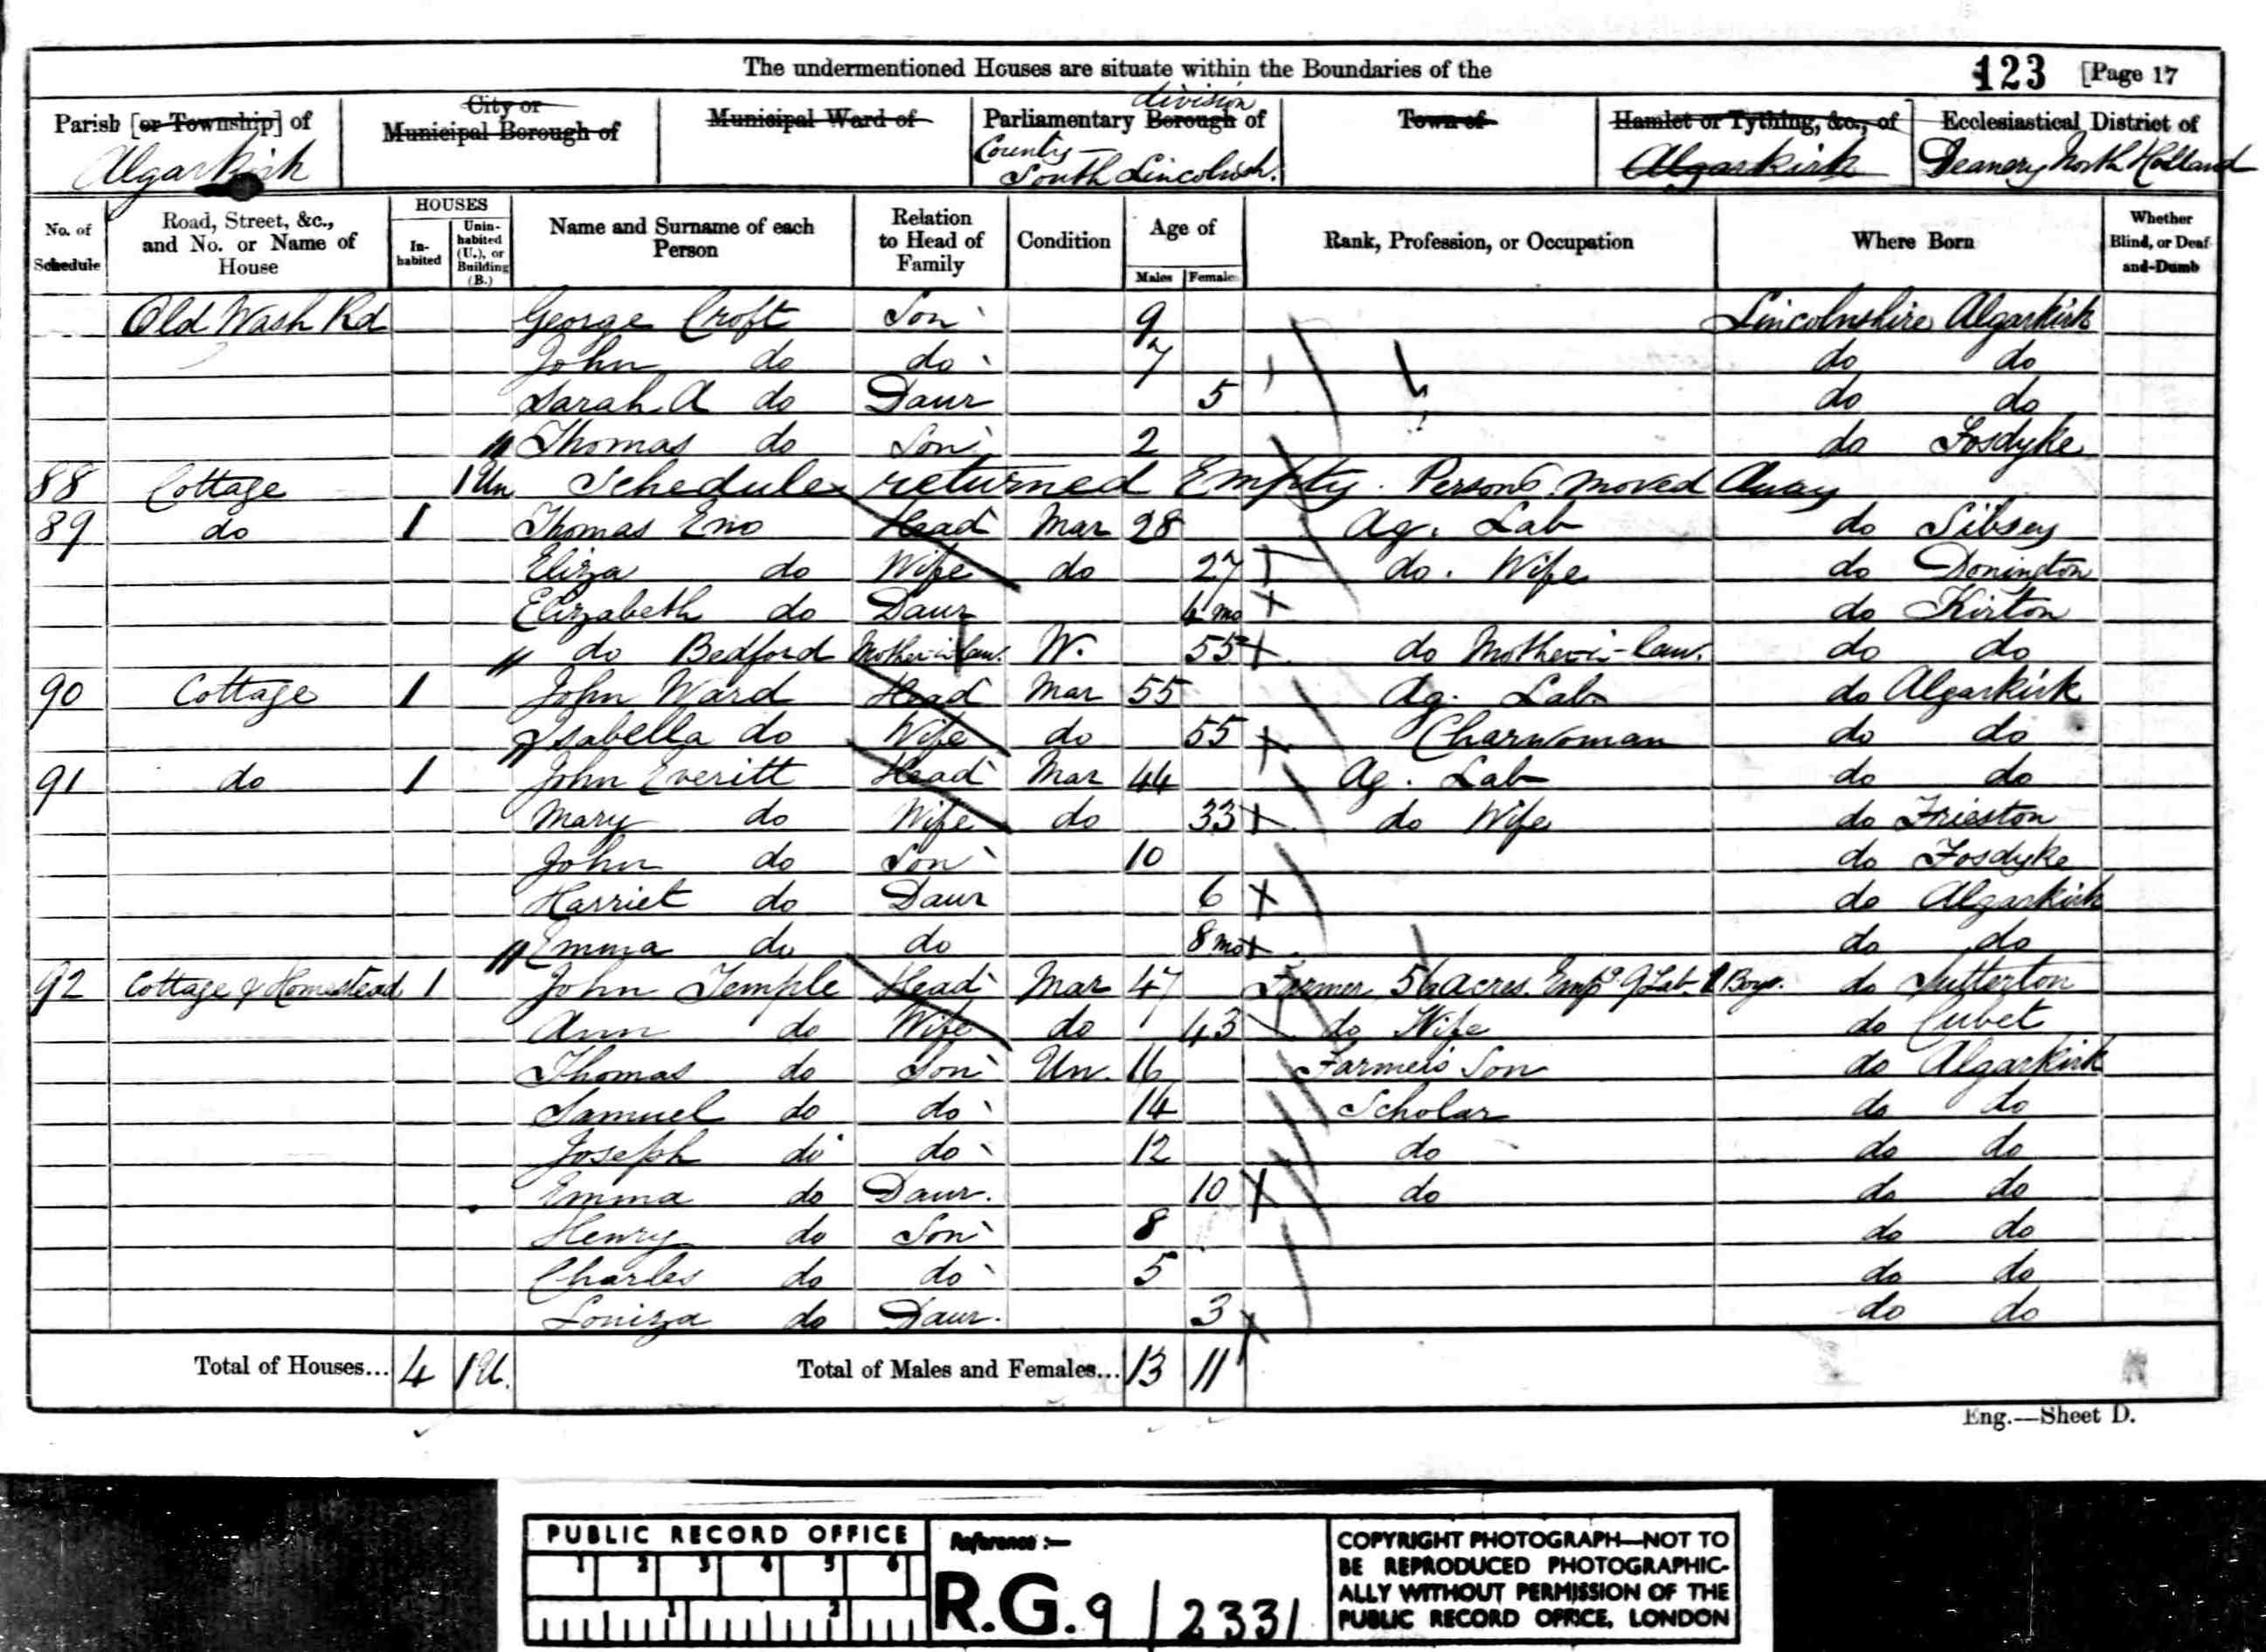 The undermentioned Houses are situate within the Boundaries of the 123 [Page 17
Parish [or Township] of Algarkirk
City or Municipal Borough of
Municipal Ward of
Parliamentary Borough division of County South Lincolnsh.
Town of
Hamlet or Tything, &c., of Algarkirk
Ecclesiastical District of Deanery North Holland
No. of Schedule
Road, Street, &c., and No. or Name of House
HOUSES
Inhabited
Uninhabited (U.), or Building (B.)
Name and Surname of each Person
Relation to Head of Family
Condition
Age of
Males Females
Rank, Profession, or Occupation
Where Born
Whether Blind, or Deaf-and-Dumb
Old Wash Rd George Croft Son 9 Lincolnshire Algarkirk
John do do 7 do do
Sarah A do Daur 5 do do
" Thomas do Son 2 do Fosdyke
88 Cottage 1 Un Schedule returned Empty. Persons moved Away
89 do 1 Thomas Eno Head Mar 28 Ag. Lab do Sibsey
Eliza do Wife do 27 do. Wife do Donington
Elizabeth do Daur 4 mo do Kirton
" do Bedford Mother-in-law. W. 55 do Mother-in-law. do do
90 Cottage 1 John Ward Head Mar 55 Ag. Lab do Algarkirk
" Isabella do Wife do 55 Charwoman do do
91 do 1 John Everitt Head Mar 44 Ag. Lab do do
Mary do Wife do 33 do Wife do Frieston
John do Son 10 do Fosdyke
Harriet do Daur 6 do Algarkirk
" Emma do do 8 mo do do
92 Cottage & Homestead 1 John Temple Head Mar 47 Farmer acres. Empg 9 Lab. Boys. do Sutterton
Ann do Wife do 43 do Wife do
Thomas do Son Un. 16 Farmers Son do Algarkirk
Samuel do do 14 Scholar do do
Joseph do do 12 do do do
Emma do Daur. 10 do do do
Henry do Son 8 do do
Charles do do 5 do do
Louiza do Daur. 3 do do
Total of Houses... 4 1 U. Total of Males and Females... 13 11
Eng.—Sheet D.
PUBLIC RECORD OFFICE
1 2 3 4 5 6
1 2
Reference :—
R.G. 9 / 2331
COPYRIGHT PHOTOGRAPH—NOT TO
BE REPRODUCED PHOTOGRAPHIC-
ALLY WITHOUT PERMISSION OF THE
PUBLIC RECORD OFFICE, LONDON